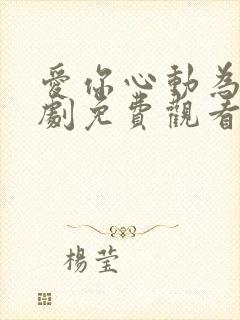 愛你心動為
劇免費觀看
楊瑩